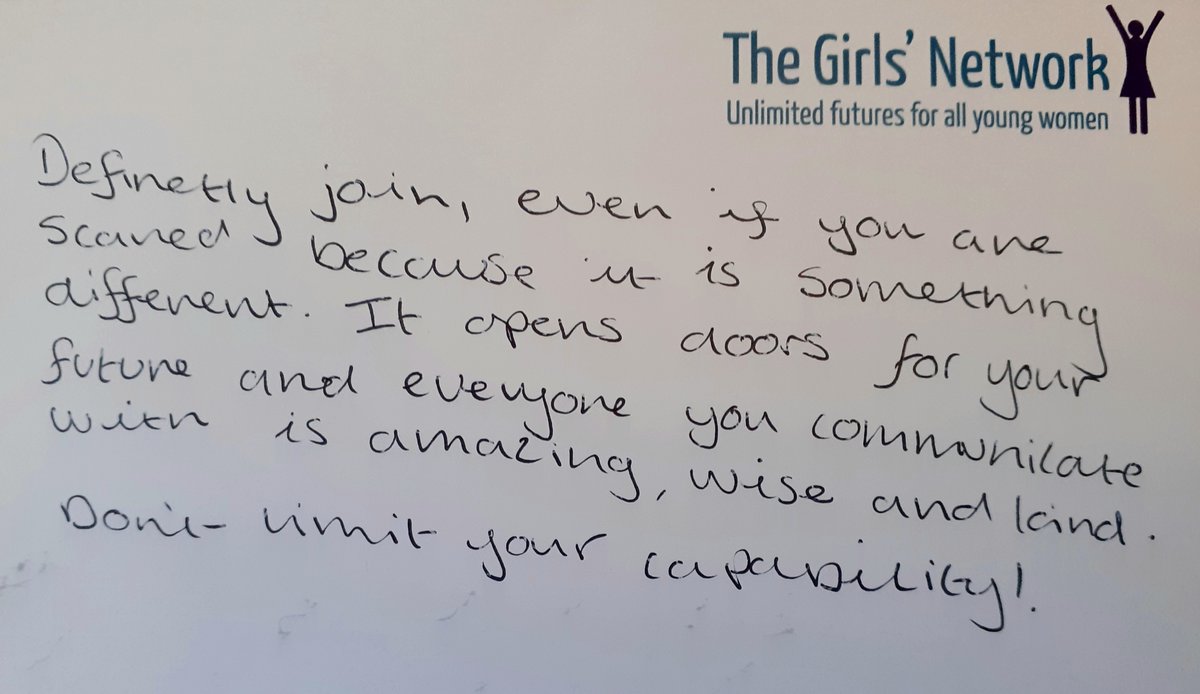 The Girls' Network
Unlimited futures for all young women
Definetly join, even if you are
scared because it is something
different. It opens doors for your
future and everyone you communicate
with is amazing, wise and kind.
Don't limit your capability!